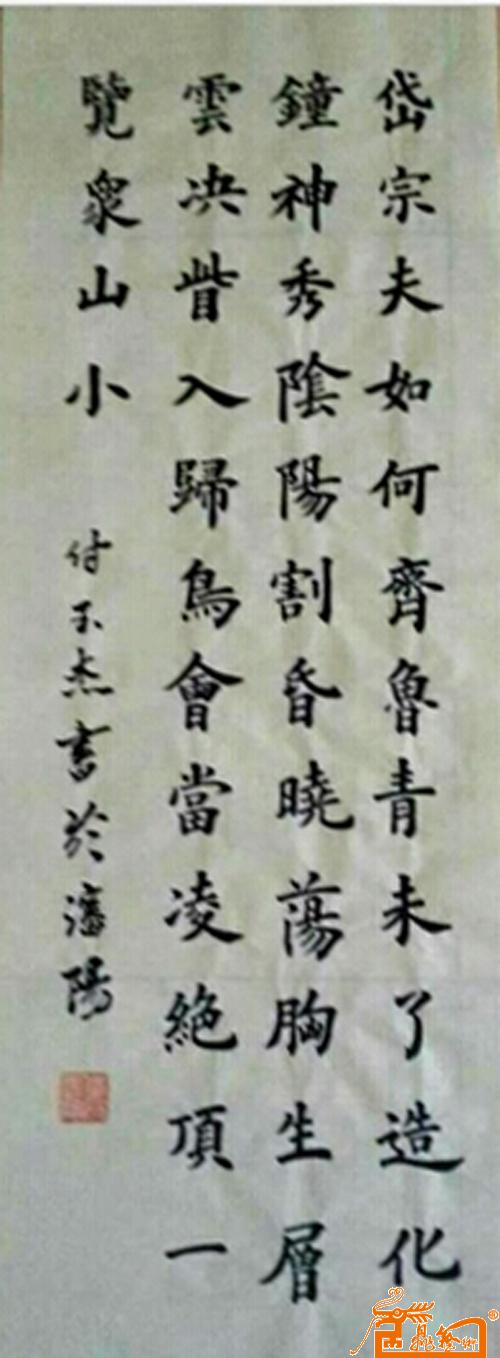 岱宗夫如何齊魯青未了造化
鐘神秀陰陽割昏曉蕩胸生層
雲决眥入歸鳥會當凌絶頂一
覽衆山小
付玉杰書於瀋陽